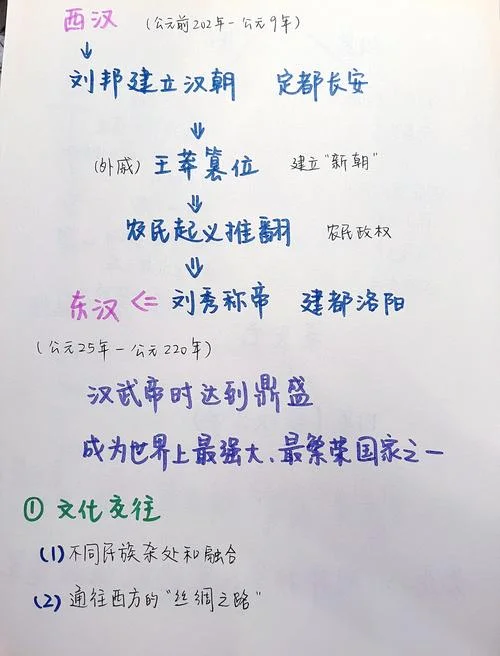 西汉 (公元前202年-公元9年)
刘邦建立汉朝 定都长安
(外戚) 王莽篡位 建立"新朝"
农民起义推翻 农民政权
东汉 刘秀称帝 建都洛阳
(公元25年-公元220年)
汉武帝时达到鼎盛
成为世界上最强大、最繁荣国家之一
① 文化交往
(1) 不同民族杂处和融合
(2) 通往西方的"丝绸之路"